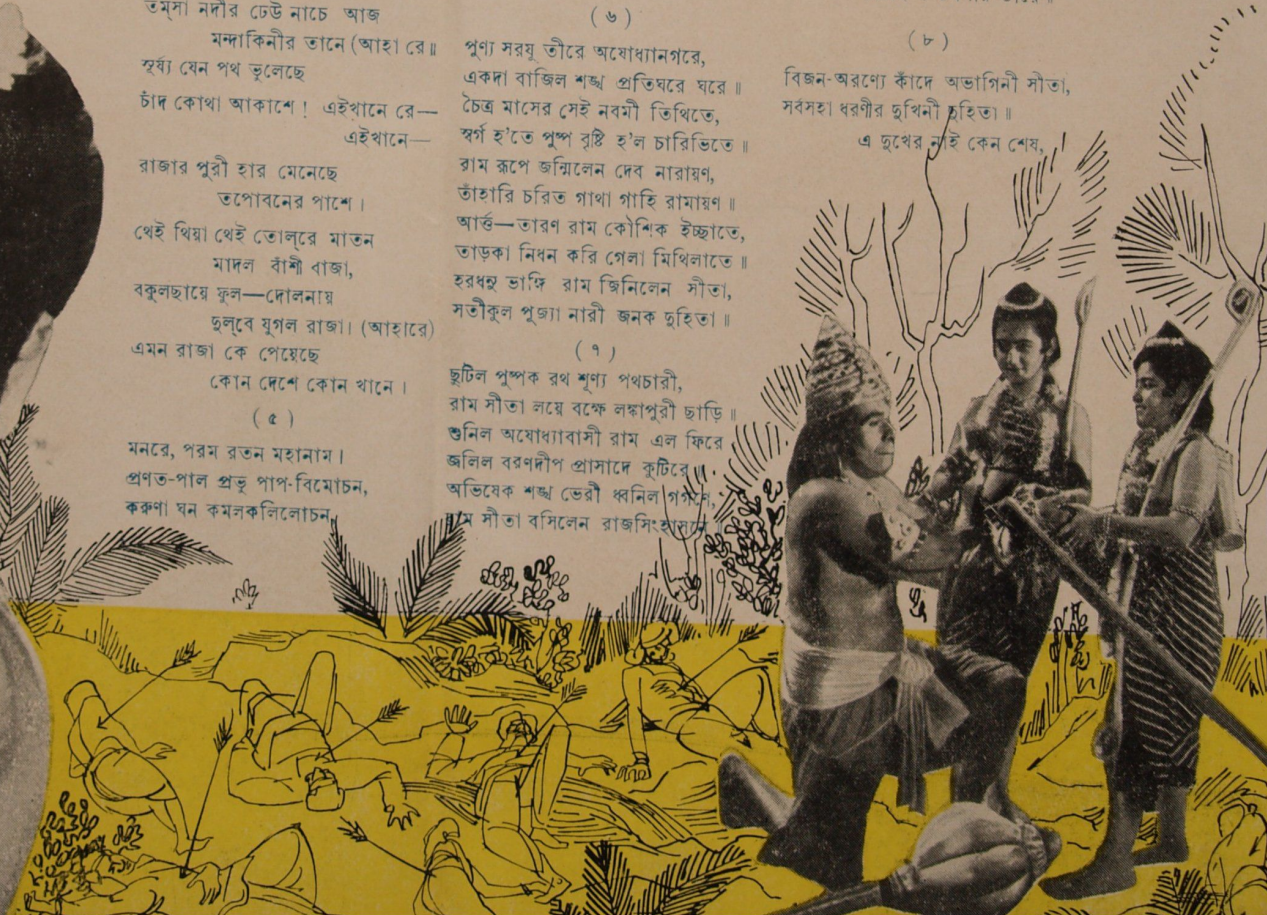 তম্‌সা নদীর ঢেউ নাচে আজ
মন্দাকিনীর তানে (আহা রে॥
সূর্য্য যেন পথ ভুলেছে
চাঁদ কোথা আকাশে! এইখানে রে—
এইখানে—
রাজার পুরী হার মেনেছে
তপোবনের পাশে।
থেই থিয়া থেই তোল্‌রে মাতন
মাদল বাঁশী বাজা,
বকুলছায়ে ফুল—দোলনায়
দুল্‌বে যুগল রাজা। (আহারে)
এমন রাজা কে পেয়েছে
কোন দেশে কোন খানে।
(৫)
মনরে, পরম রতন মহানাম।
প্রণত-পাল প্রভু পাপ-বিমোচন,
করুণা ঘন কমলকলিলোচন,
(৬)
পুণ্য সরযূ তীরে অযোধ্যানগরে,
একদা বাজিল শঙ্খ প্রতিঘরে ঘরে॥
চৈত্র মাসের সেই নবমী তিথিতে,
স্বর্গ হ'তে পুষ্প বৃষ্টি হ'ল চারিভিতে॥
রাম রূপে জন্মিলেন দেব নারায়ণ,
তাঁহারি চরিত গাথা গাহি রামায়ণ॥
আর্ত্ত—তারণ রাম কৌশিক ইচ্ছাতে,
তাড়কা নিধন করি গেলা মিথিলাতে॥
হরধনু ভাঙ্গি রাম জিনিলেন সীতা,
সতীকুল পূজ্যা নারী জনক দুহিতা॥
(৭)
ছুটিল পুষ্পক রথ শূণ্য পথচারী,
রাম সীতা লয়ে বক্ষে লঙ্কাপুরী ছাড়ি॥
শুনিল অযোধ্যাবাসী রাম এল ফিরে
জ্বলিল বরণদীপ প্রাসাদে কুটিরে॥
অভিষেক শঙ্খ ভেরী ধ্বনিল গগণে,
রাম সীতা বসিলেন রাজসিংহাসনে॥
(৮)
বিজন-অরণ্যে কাঁদে অভাগিনী সীতা,
সর্বসহা ধরণীর দুখিনী দুহিতা॥
এ দুখের নাই কেন শেষ,